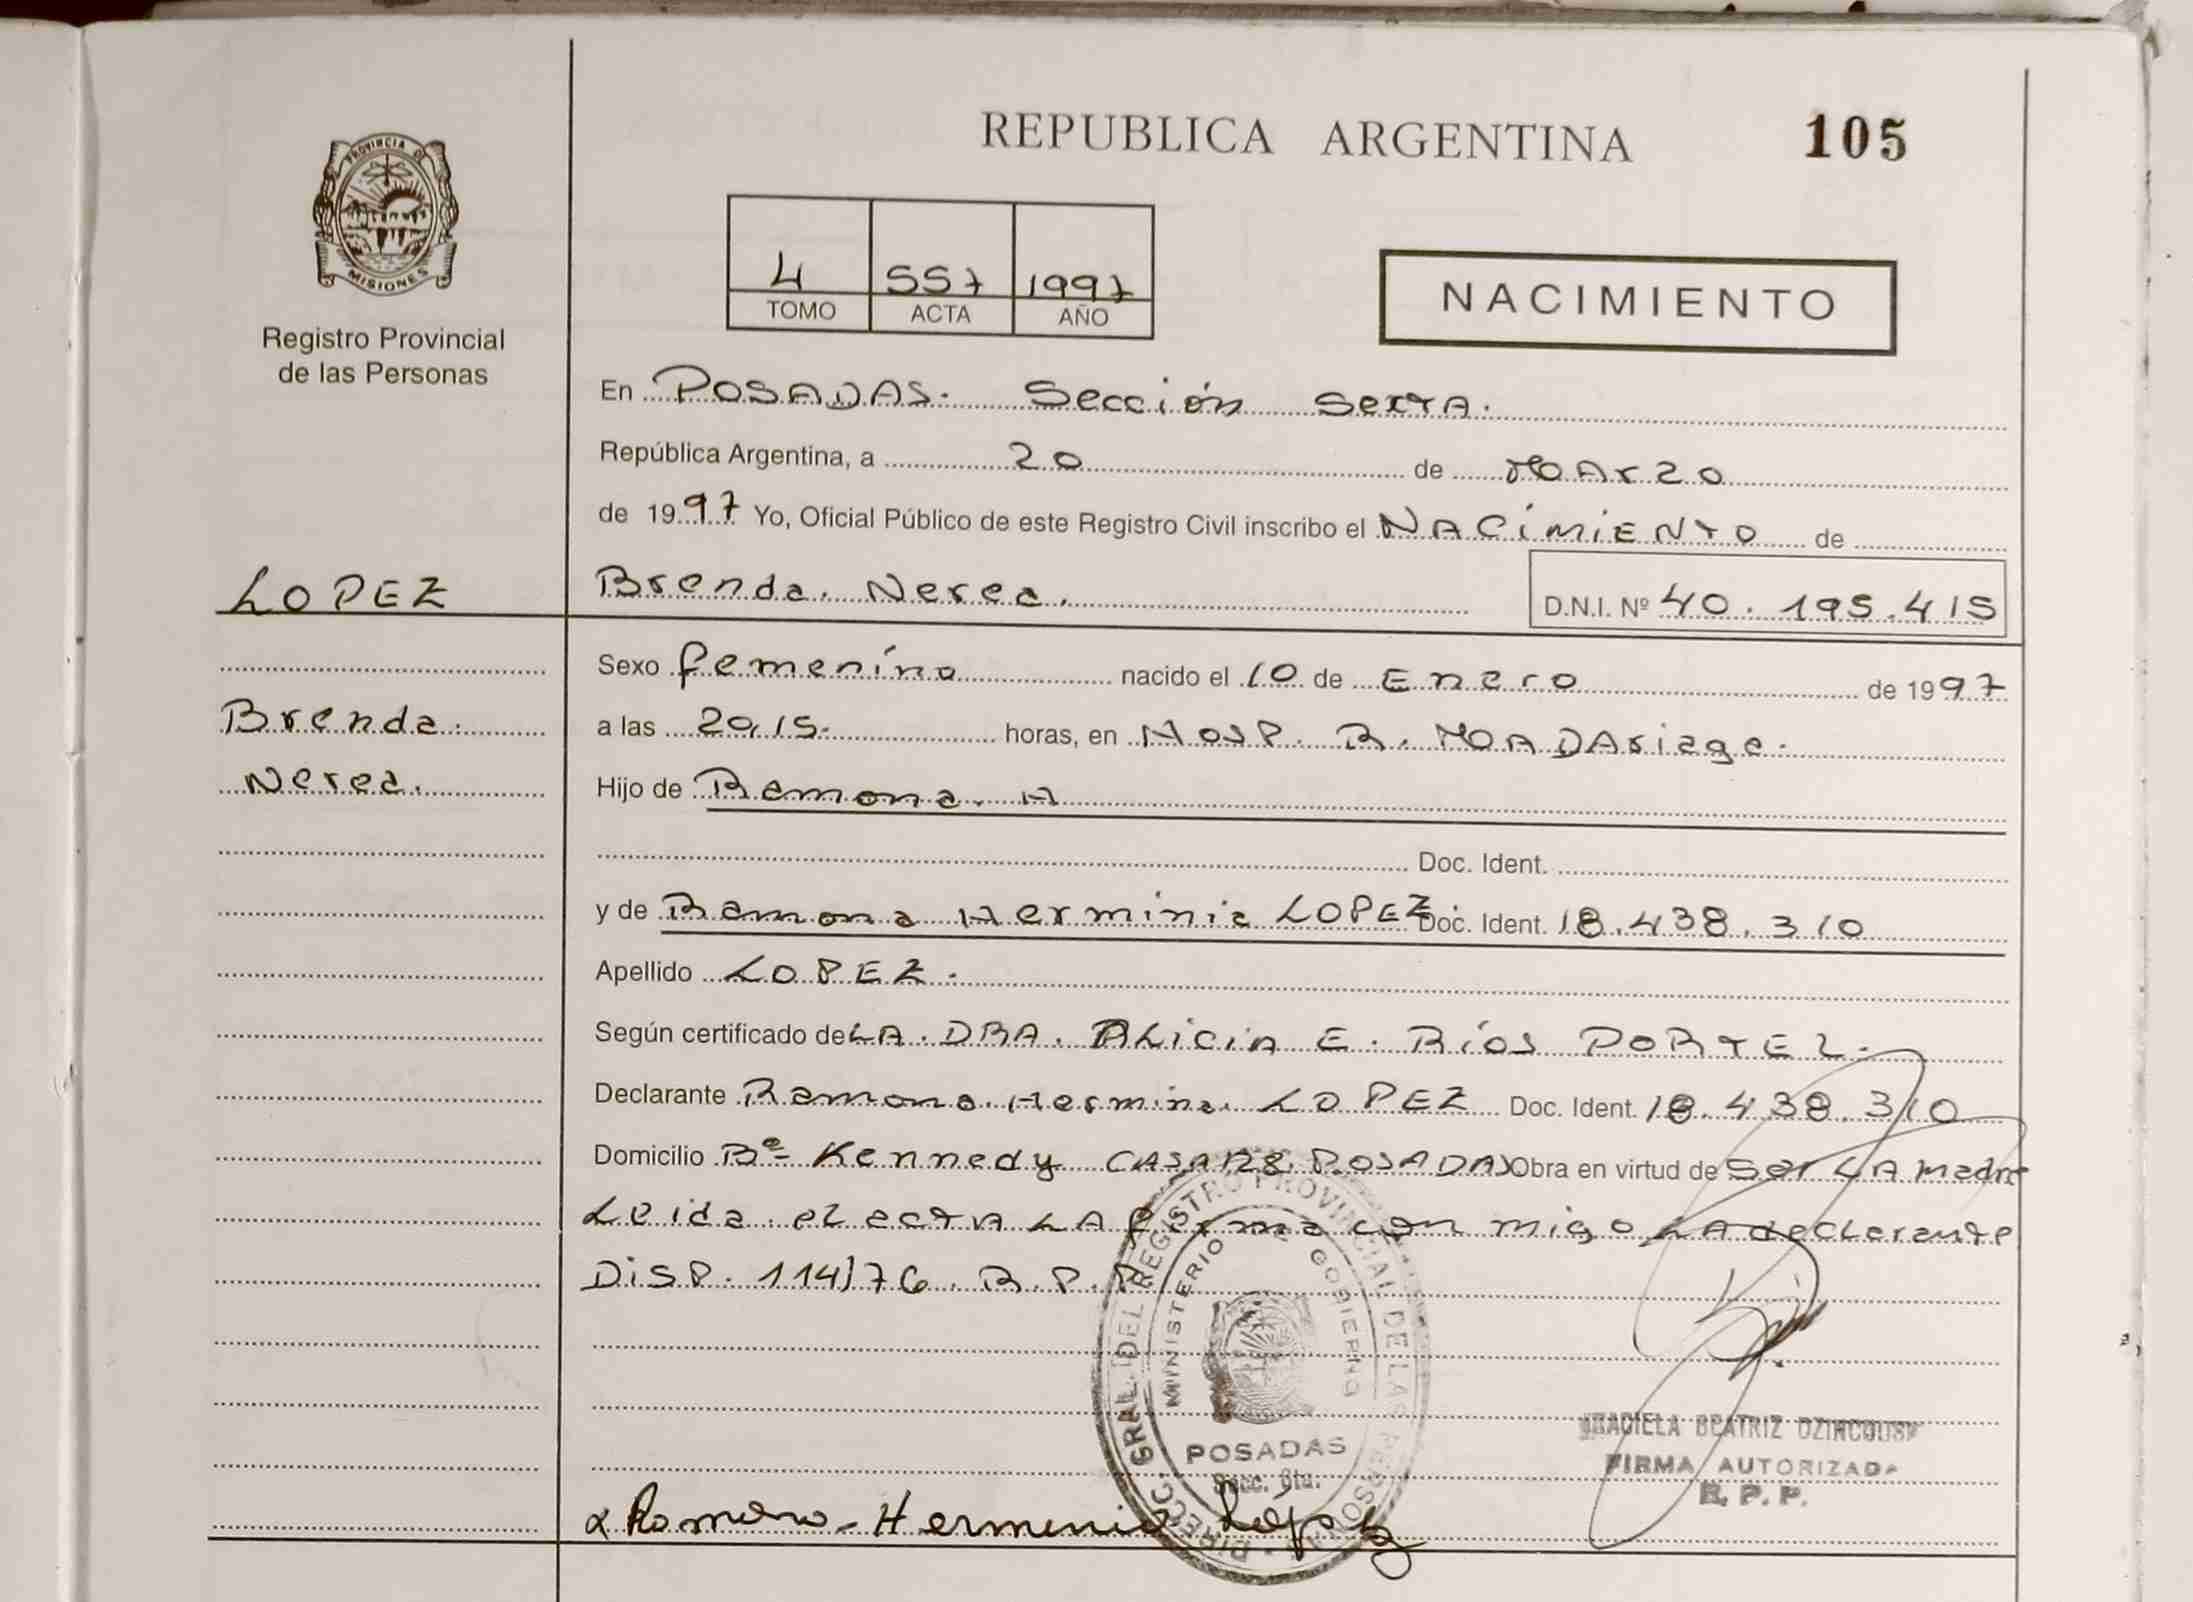 REPUBLICA ARGENTINA
105
PROVINCIA DE
MISIONES
Registro Provincial
de las Personas
4 557 1997
TOMO ACTA AÑO
NACIMIENTO
En POSADAS. Sección Sexta.
República Argentina, a 20 de MARZO
de 1997 Yo, Oficial Público de este Registro Civil inscribo el NACIMIENTO de
LOPEZ
Brenda. Nerea.
D.N.I. Nº 40.195.415
Brenda.
Nerea.
Sexo femenino nacido el 10 de Enero de 1997
a las 20,15. horas, en HOSP. R. MADARiaga.
Hijo de Ramona. H
Doc. Ident.
y de Ramona Herminia LOPEZ Doc. Ident. 18.438.310
Apellido LOPEZ.
Según certificado de LA. DRA. ALiCiA E. Ríos PORTEL.
Declarante Ramona. Hermina. LOPEZ Doc. Ident. 18.438.310
Domicilio Bº Kennedy CASA 128. POSADAS Obra en virtud de ser LA madre
Leida el acta LA firma conmigo LA declarante
DiSP. 114/76. R.P.P.
DIRECC. GRAL. DEL REGISTRO PROVINCIAL DE LAS PERSONAS
MINISTERIO DE GOBIERNO
POSADAS
Secc. 6ta.
GRACIELA BEATRIZ
FIRMA AUTORIZADA
R.P.P.
Ramona - Hermenia Lopez